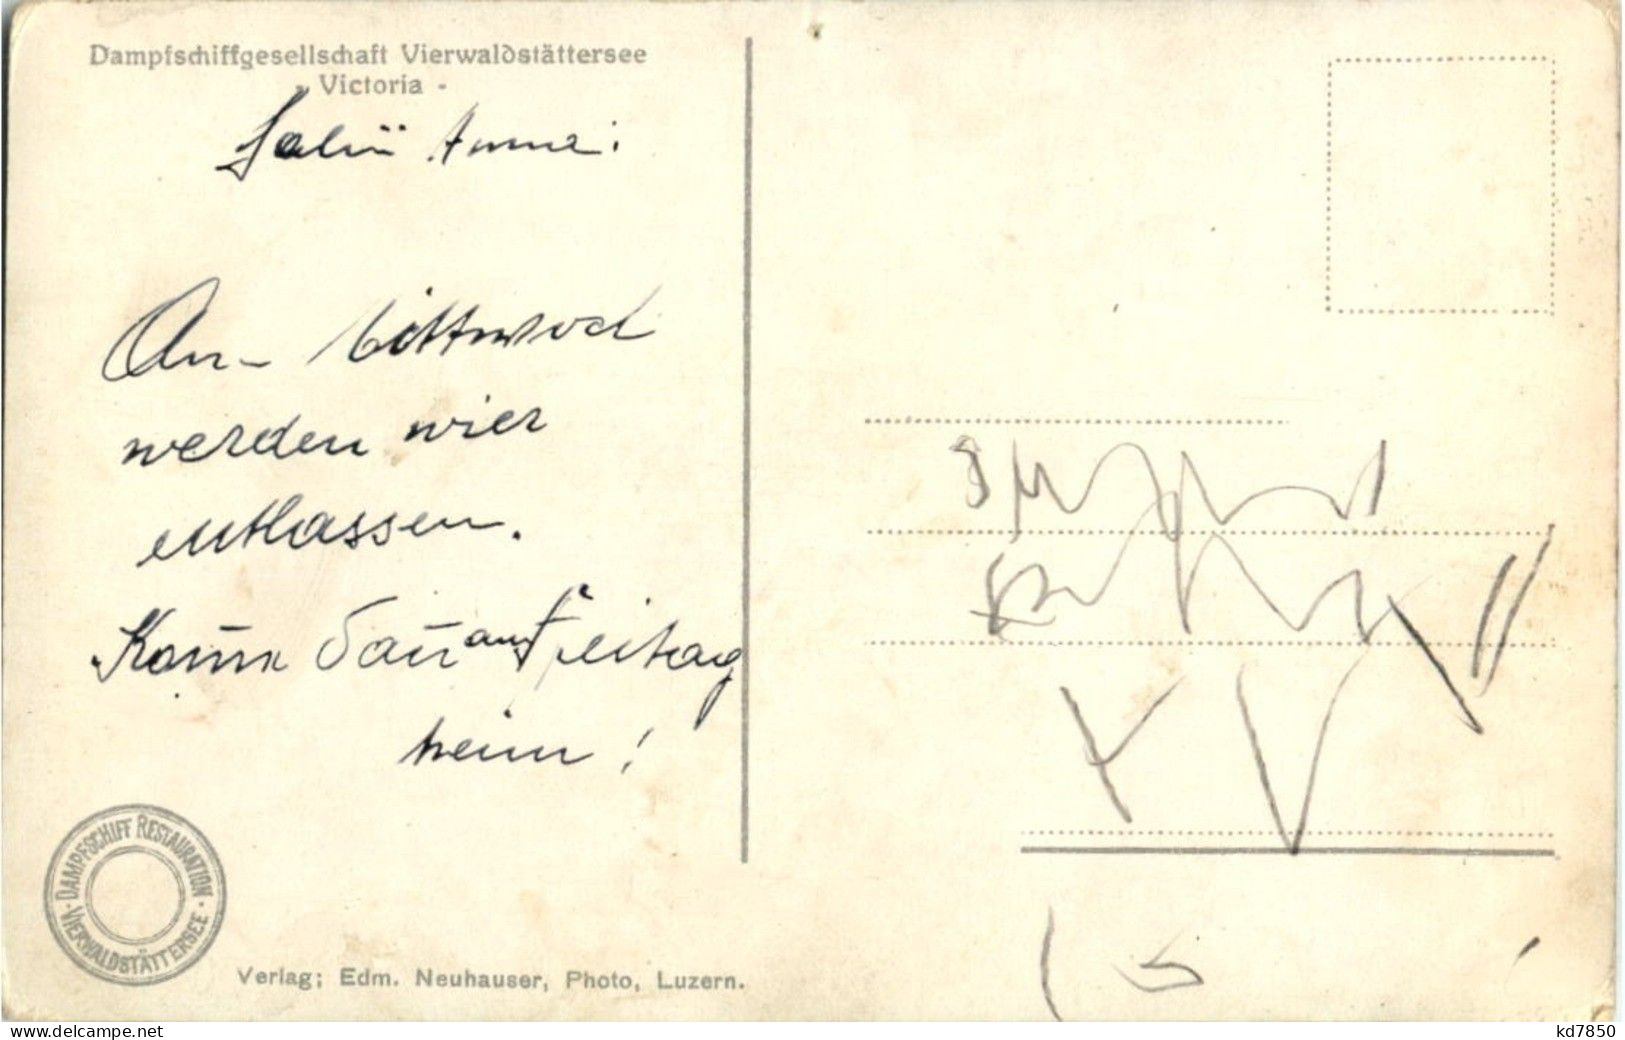 Dampfschiffgesellschaft Vierwaldstättersee
- Victoria -
Salü Anna:
An- Mittwoch
werden wier
entlassen.
Kom̅e dan̅ am Freitag
heim!
DAMPFSCHIFF RESTAURATION
VIERWALDSTÄTTERSEE
Verlag; Edm. Neuhauser, Photo, Luzern.
kd7850